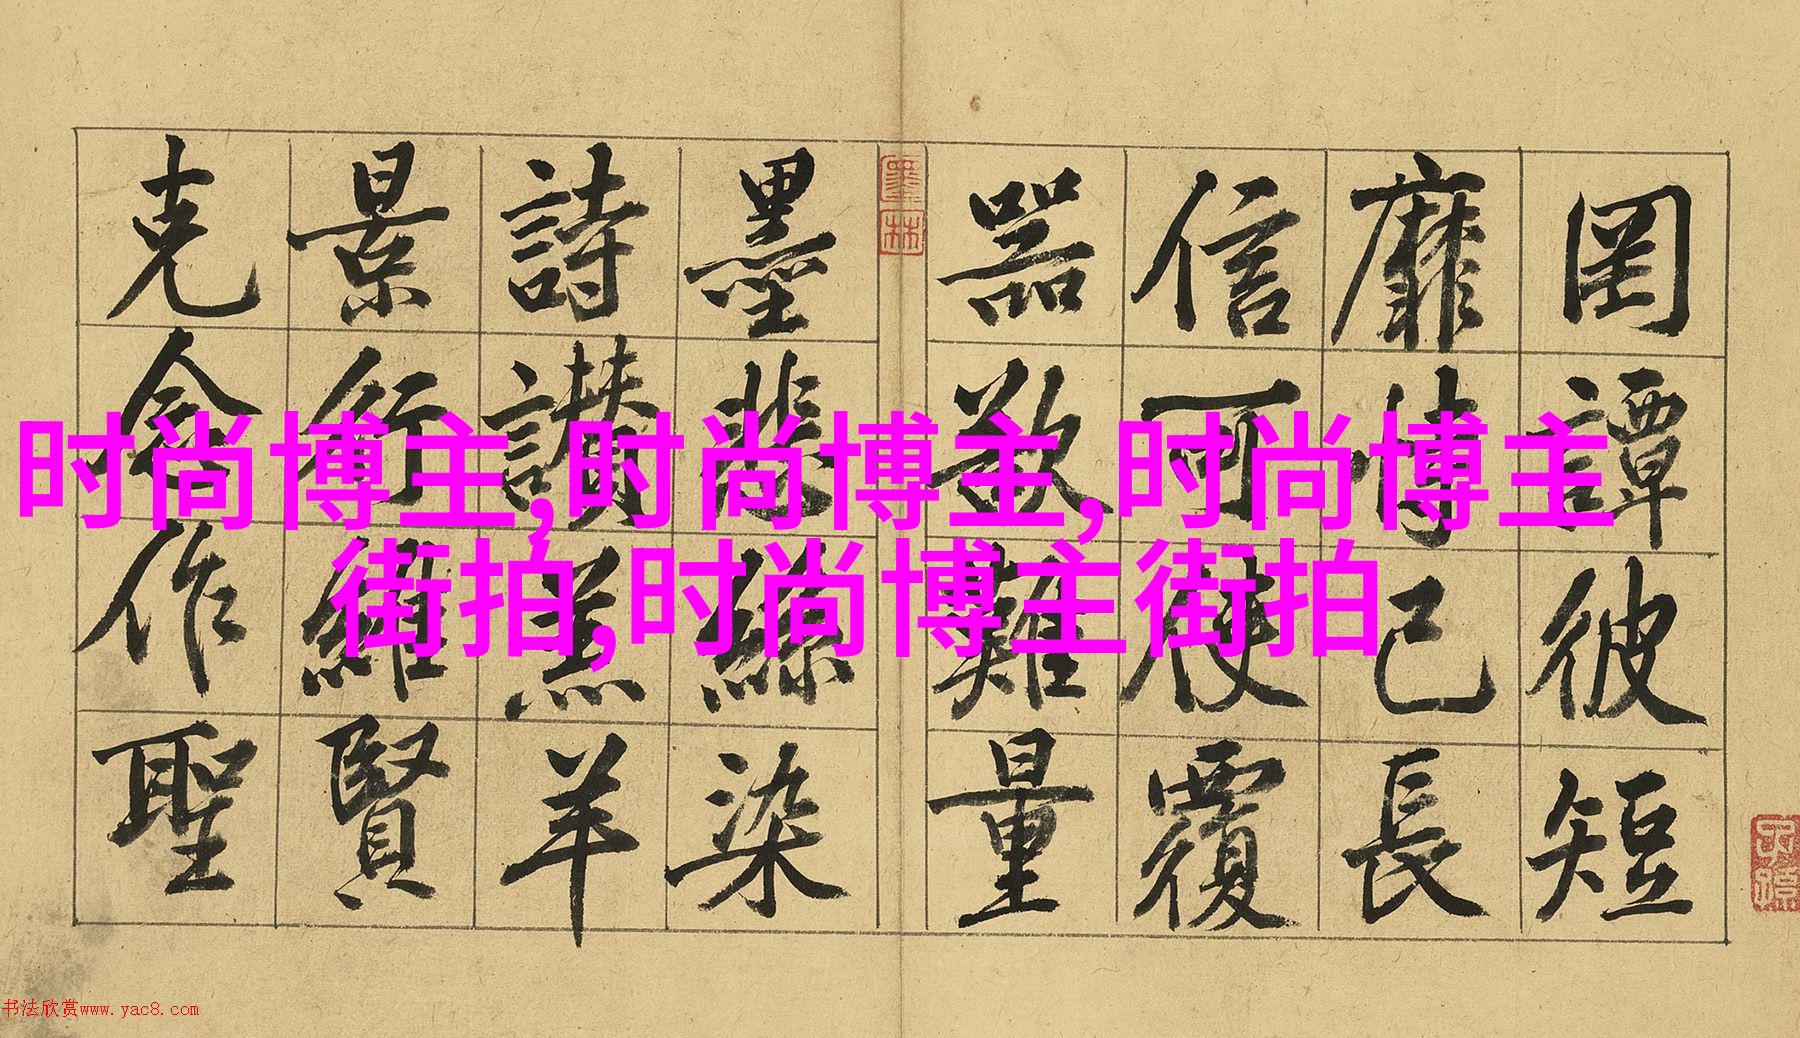 罔談彼短
靡恃己長
信可使覆
器欲難量
墨悲絲染
詩讚羔羊
景行維賢
克念作聖
墨林
时尚博主,时尚博主,时尚博主
街拍,时尚博主街拍
书法欣赏www.yac8.com